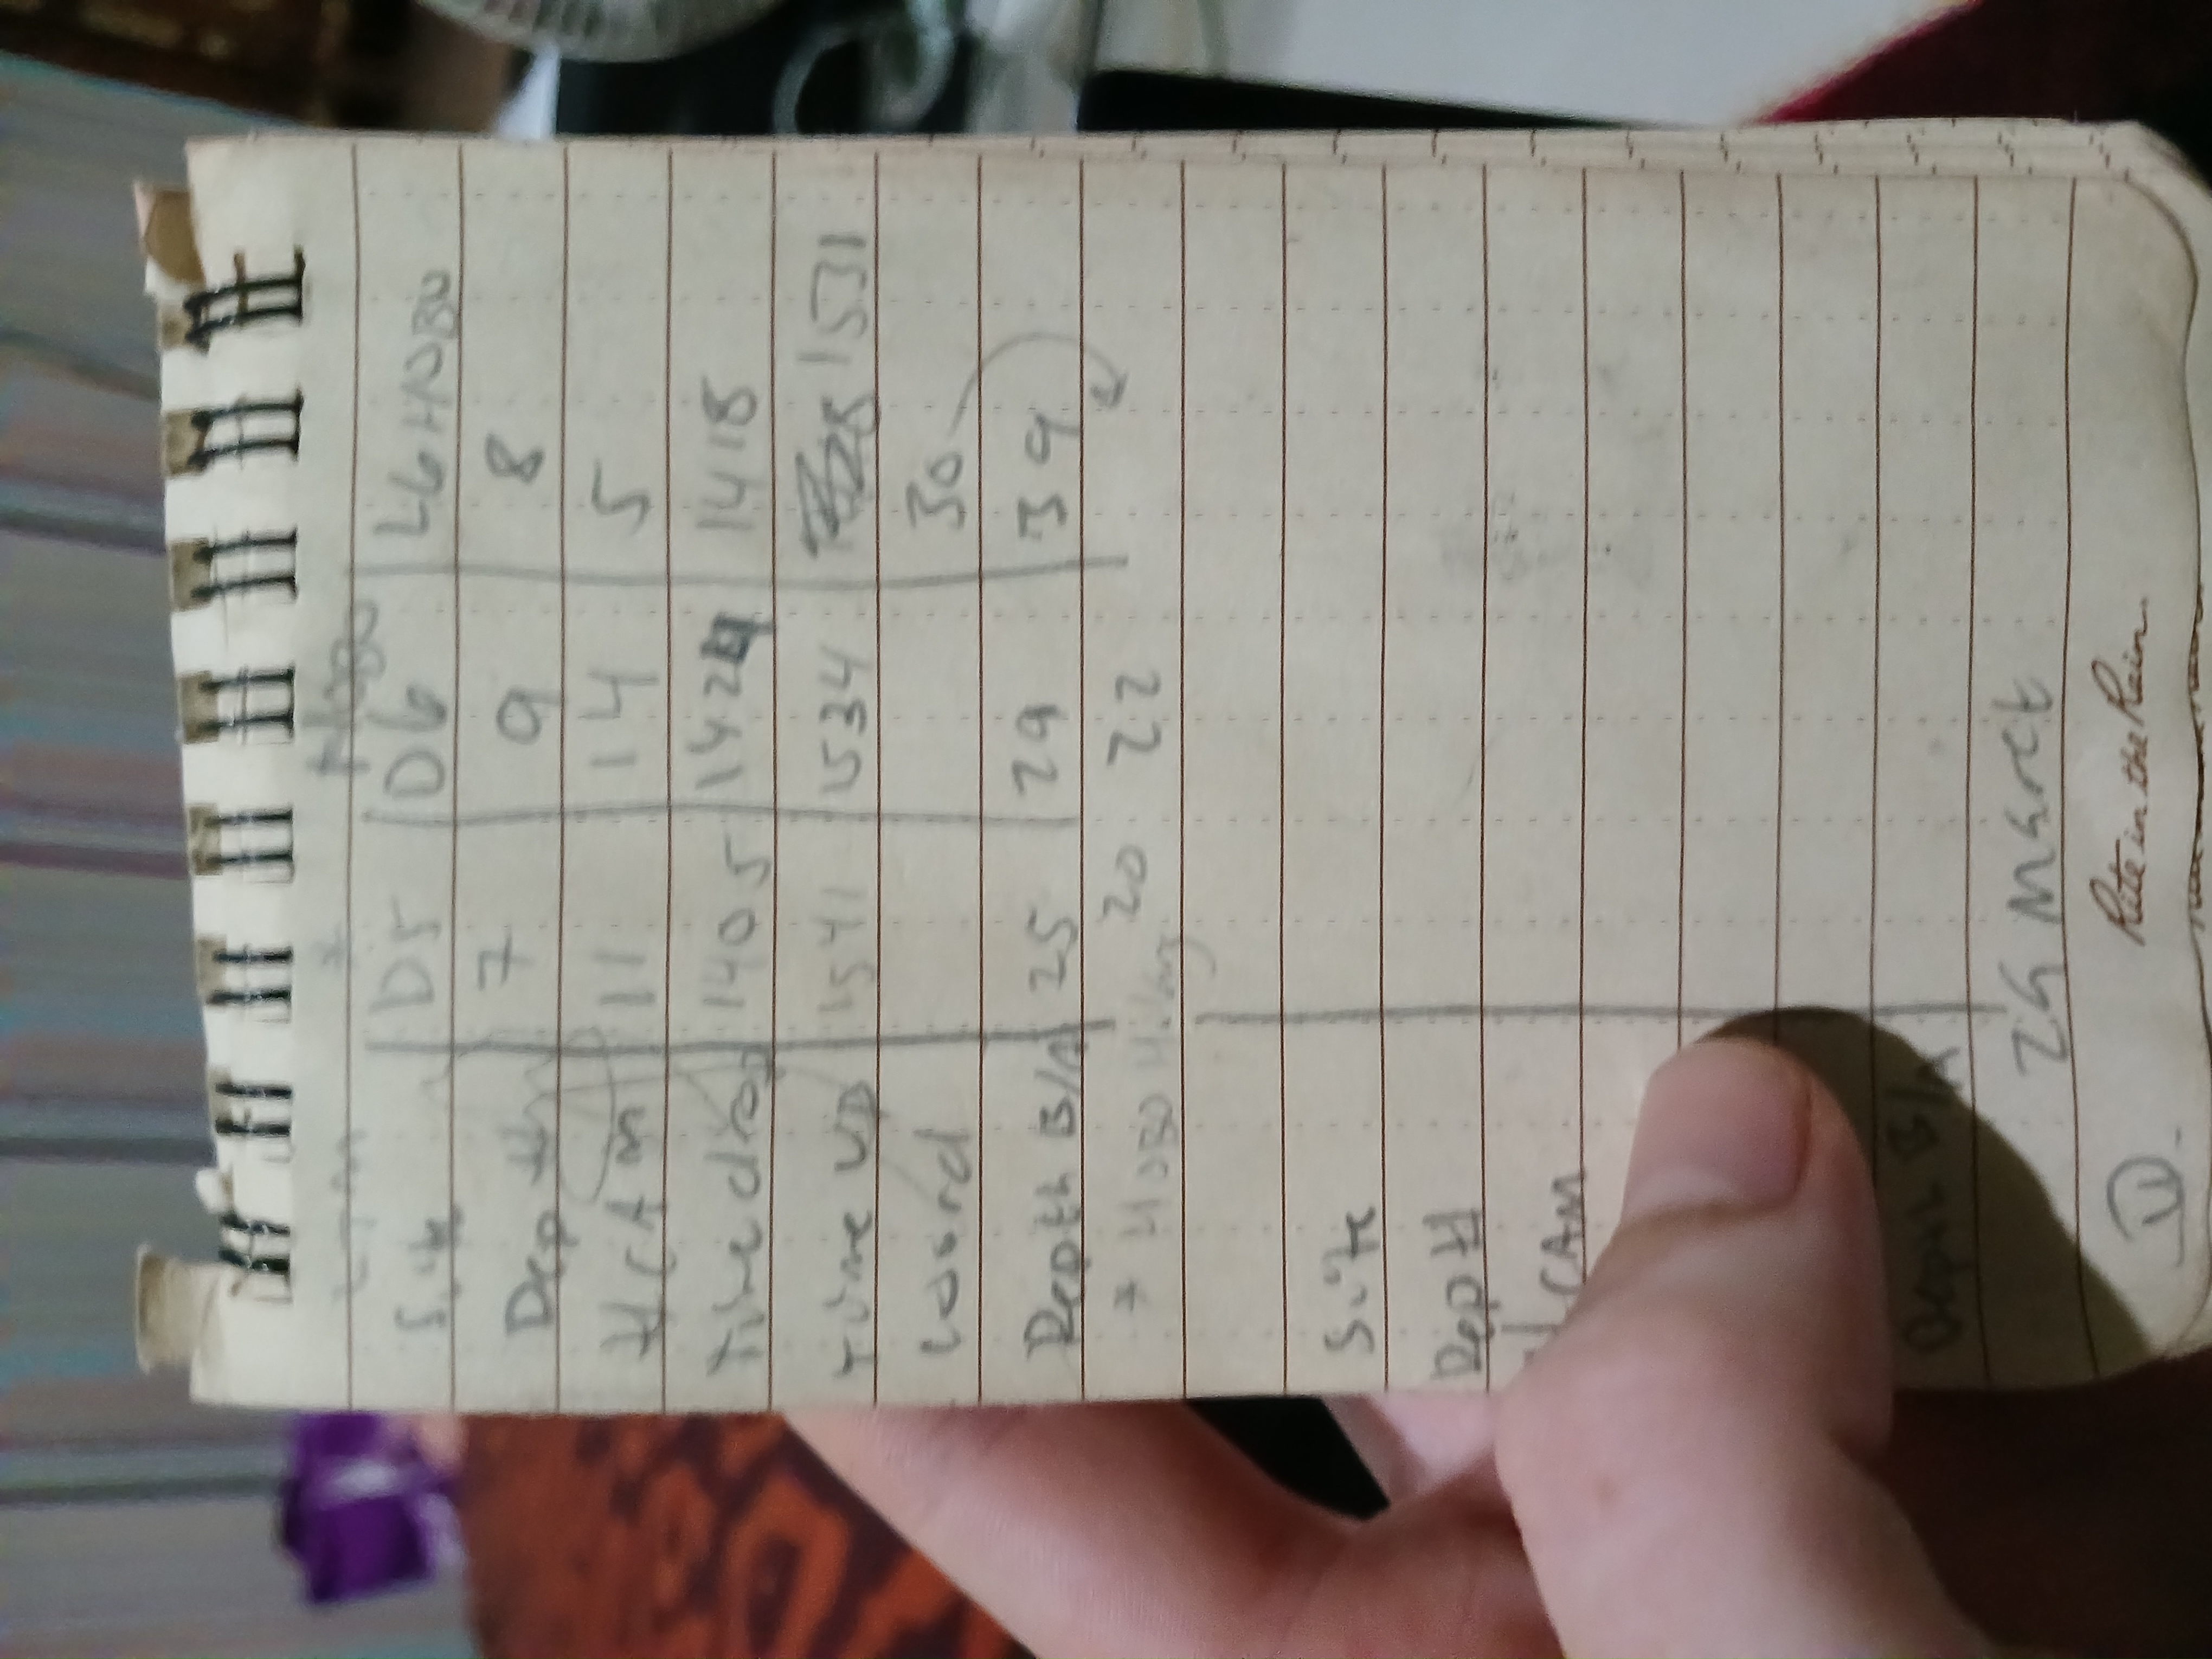 * HOBO
Site D5 D6 L6 HOBO
Depth 7 9 8
# CAM 11 14 5
Time drop 1405 1424 1418
Time UP 1541 1534 1531
Coord 30
Depth B/A 25 29 39
* HOBO 20 22
Site
Depth
# CAM
Depth B/A
29 Maret
Rite in the Rain